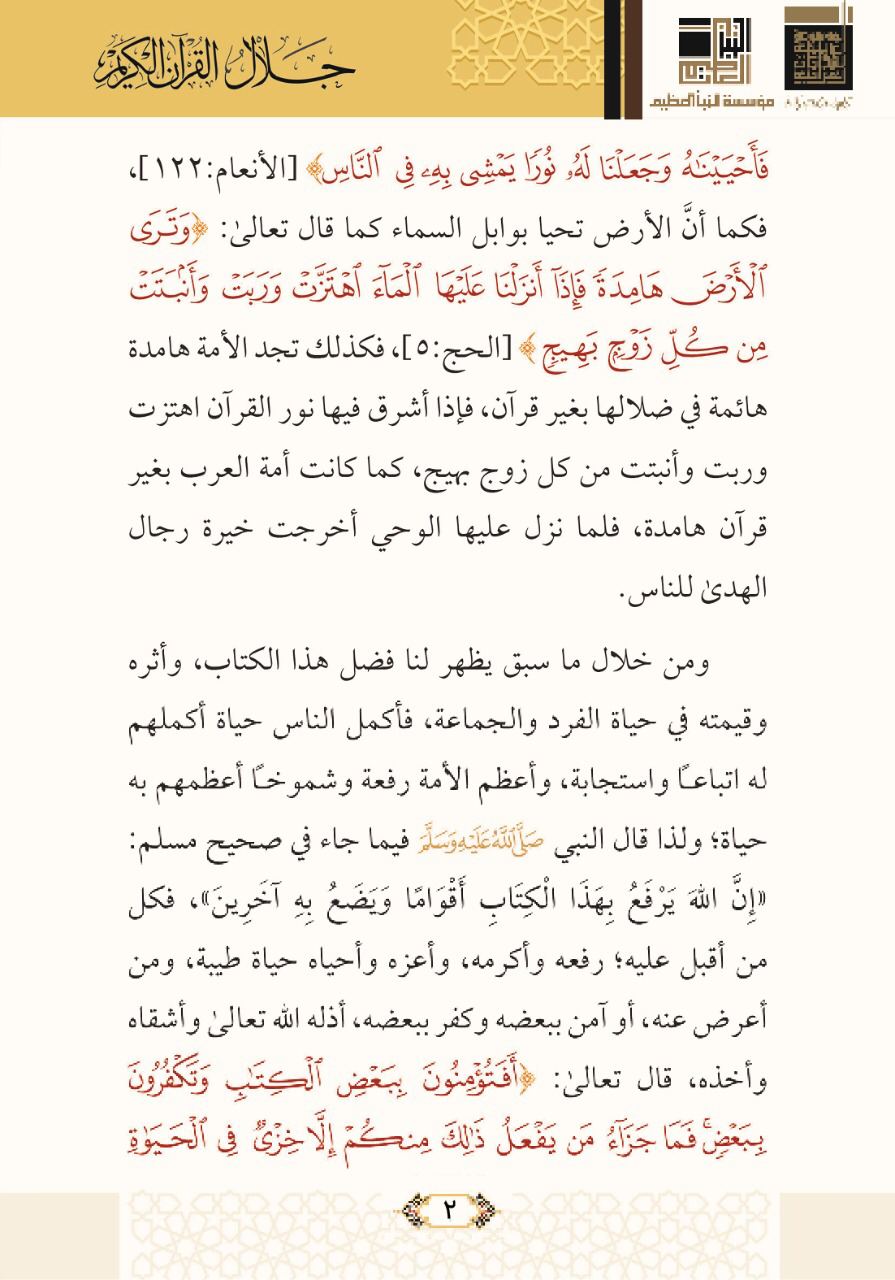 جلال القرآن الكريم
مؤسسة النبأ العظيم
فَأَحْيَيْنَـٰهُ وَجَعَلْنَا لَهُۥ نُورًا يَمْشِى بِهِۦ فِى ٱلنَّاسِ﴾ [الأنعام:١٢٢]،
فكما أنَّ الأرض تحيا بوابل السماء كما قال تعالىٰ: ﴿وَتَرَى
ٱلْأَرْضَ هَامِدَةً فَإِذَآ أَنزَلْنَا عَلَيْهَا ٱلْمَآءَ ٱهْتَزَّتْ وَرَبَتْ وَأَنۢبَتَتْ
مِن كُلِّ زَوْجٍۭ بَهِيجٍ﴾ [الحج:٥]، فكذلك تجد الأمة هامدة
هائمة في ضلالها بغير قرآن، فإذا أشرق فيها نور القرآن اهتزت
وربت وأنبتت من كل زوج بهيج، كما كانت أمة العرب بغير
قرآن هامدة، فلما نزل عليها الوحي أخرجت خيرة رجال
الهدىٰ للناس.
ومن خلال ما سبق يظهر لنا فضل هذا الكتاب، وأثره
وقيمته في حياة الفرد والجماعة، فأكمل الناس حياة أكملهم
له اتباعًا واستجابة، وأعظم الأمة رفعة وشموخًا أعظمهم به
حياة؛ ولذا قال النبي صَلَّى اللَّهُ عَلَيْهِ وَسَلَّمَ فيما جاء في صحيح مسلم:
«إِنَّ اللهَ يَرْفَعُ بِهَذَا الْكِتَابِ أَقْوَامًا وَيَضَعُ بِهِ آخَرِينَ»، فكل
من أقبل عليه؛ رفعه وأكرمه، وأعزه وأحياه حياة طيبة، ومن
أعرض عنه، أو آمن ببعضه وكفر ببعضه، أذله الله تعالىٰ وأشقاه
وأخذه، قال تعالىٰ: ﴿أَفَتُؤْمِنُونَ بِبَعْضِ ٱلْكِتَـٰبِ وَتَكْفُرُونَ
بِبَعْضٍ ۚ فَمَا جَزَآءُ مَن يَفْعَلُ ذَٰلِكَ مِنكُمْ إِلَّا خِزْىٌ فِى ٱلْحَيَوٰةِ
٢